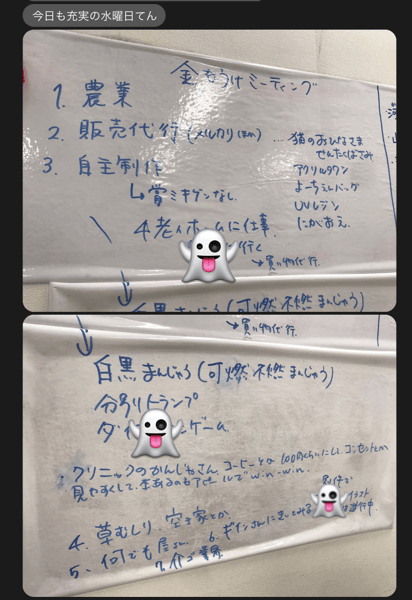 今日も充実の水曜日てん
金もうけミーティング
1. 農業
2. 販売代行(メルカリほか)
3. 自主制作 … 猫のおひなさま
せんたくばさみ
アクリルタワシ
よーちえんバッグ
UVレジン
にがおえ
↳賞ミキゲンなし
4.老人ホームに仕事
行く
→買い物代行.
白黒まんじゅう(可燃不燃まんじゅう)
→買い物代行.
白黒まんじゅう(可燃不燃まんじゅう)
分別トランプ
ゲーム
クリニックのかんじゃさん、コーヒー 100円くらいにして、コンセントとか
見やすくして、本あるのもアピールでwin-win.
イラスト
は進行中.
4. 草むしり、空き家とか
5. 何でも屋さん 6. ギインさんにきいてみる
7. 介ゴ業界